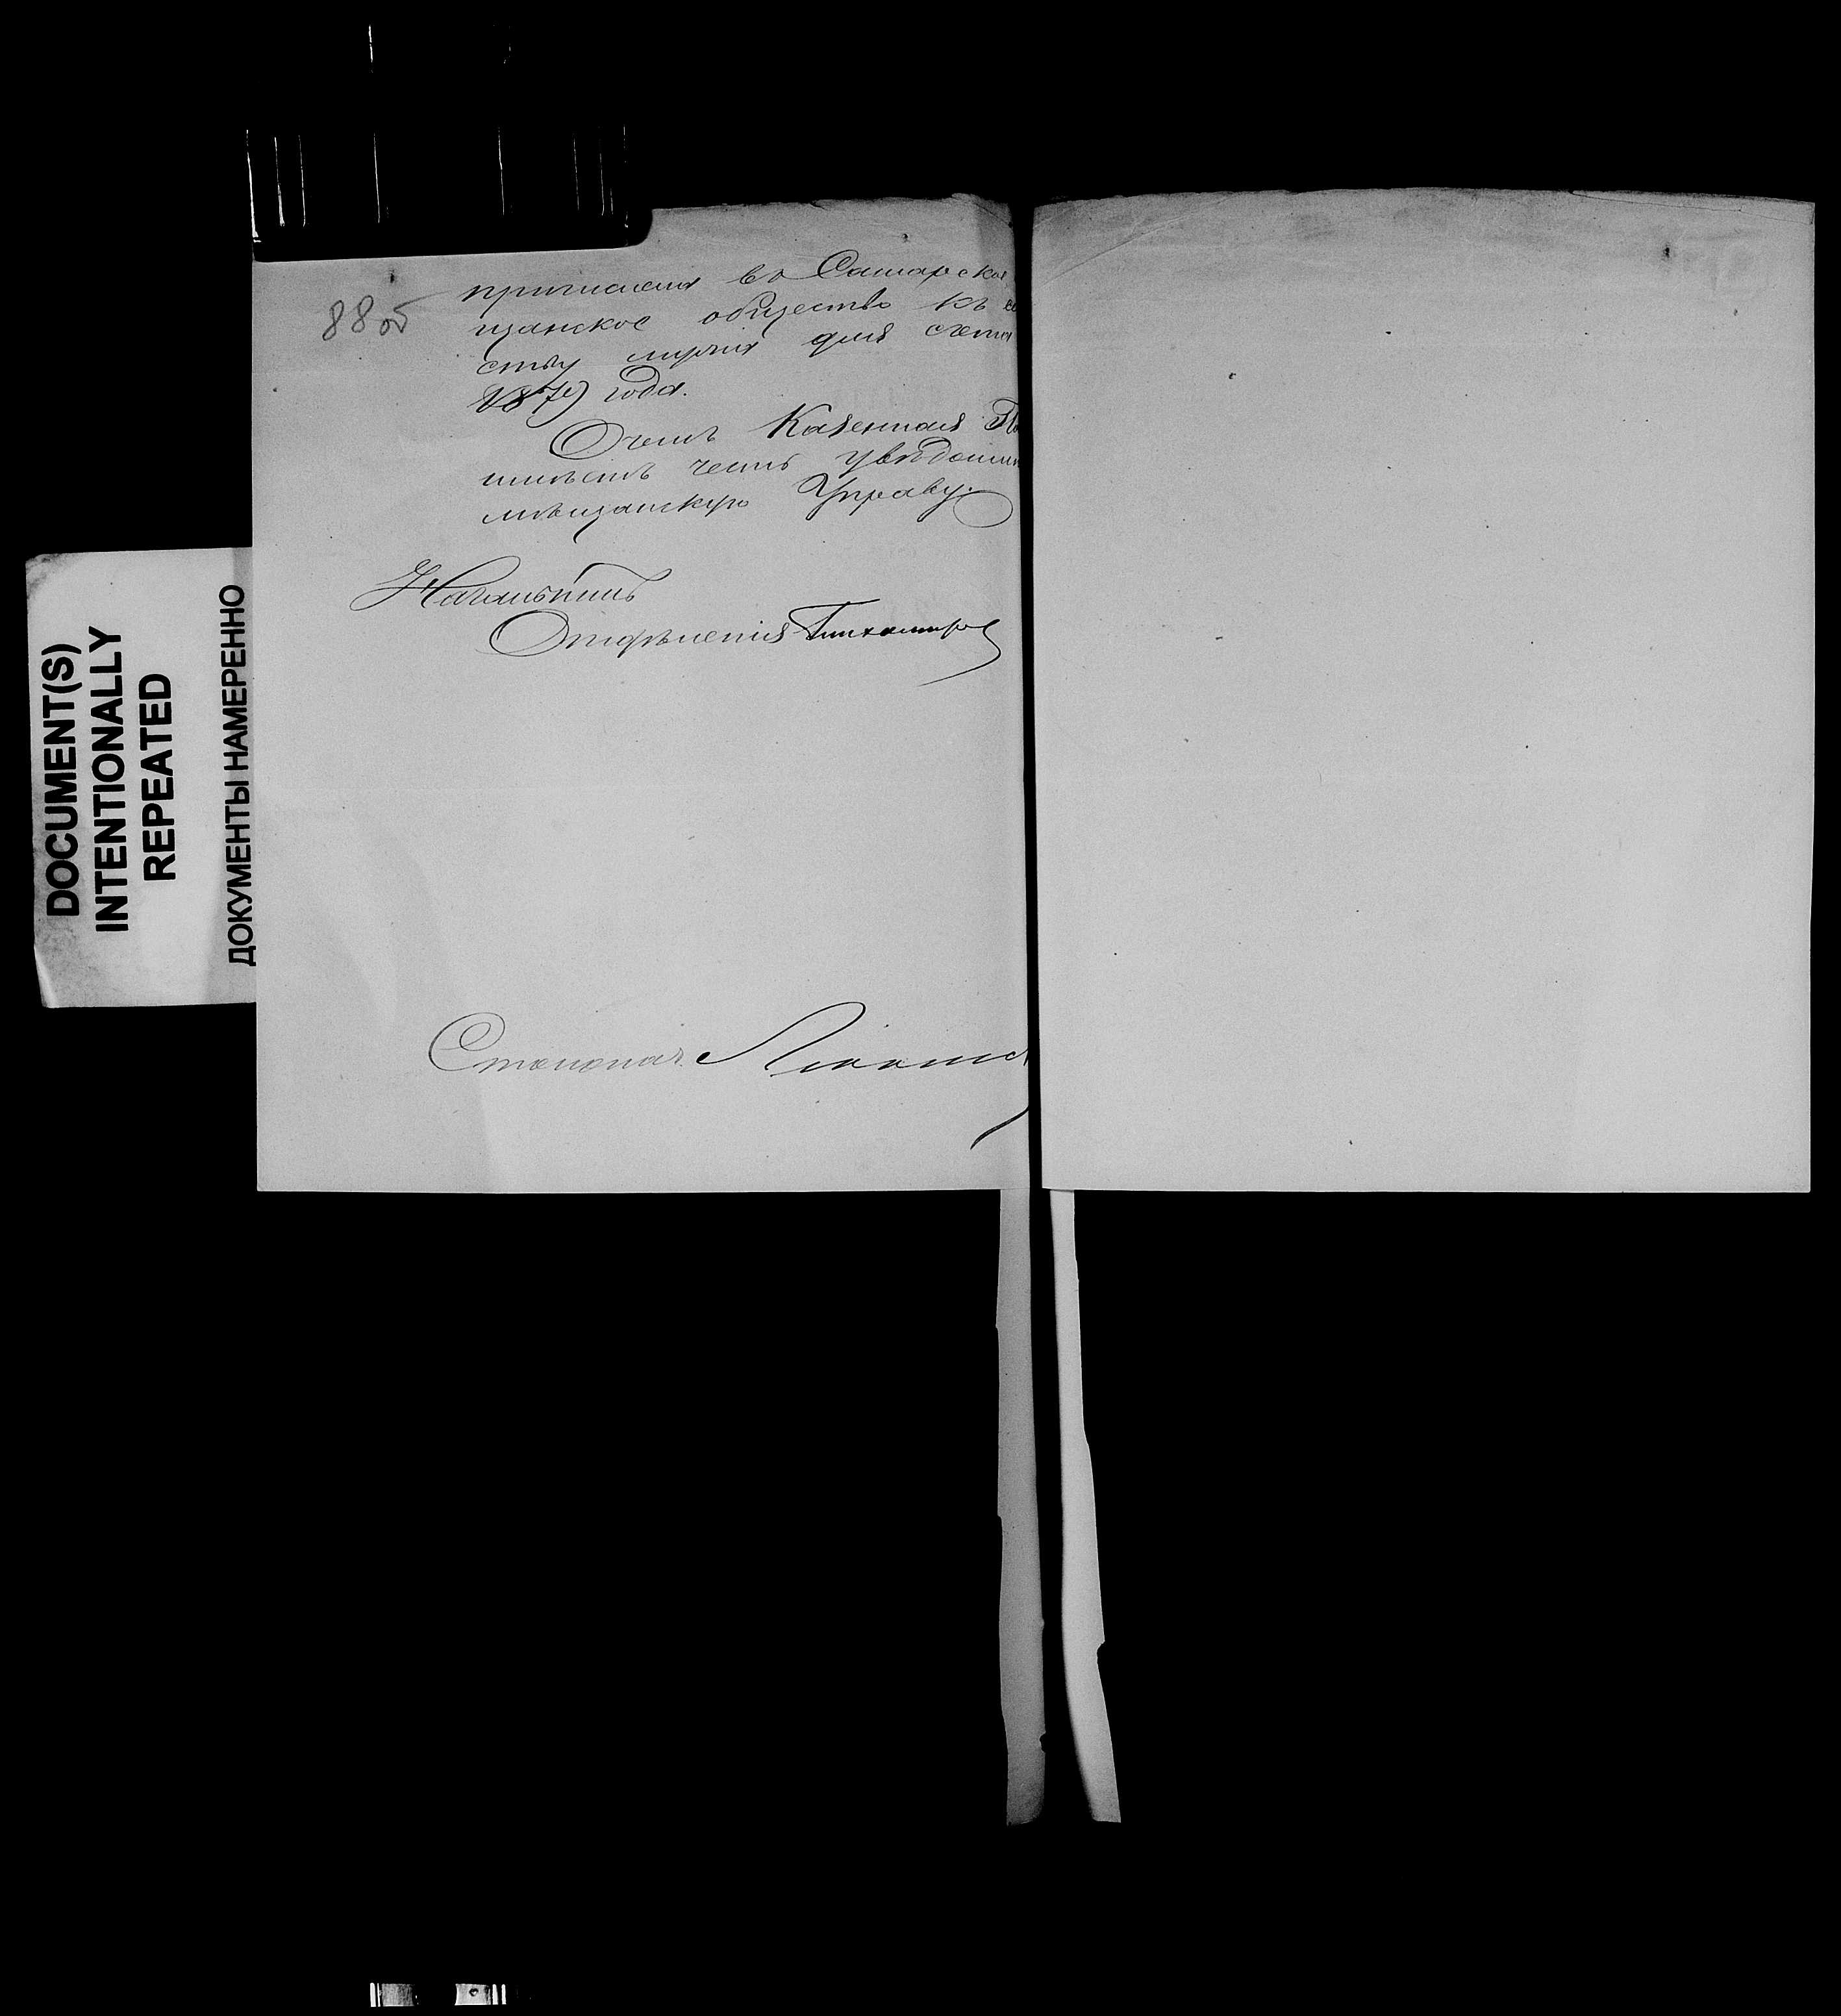 88 об
причисленъ въ Самарское
щанское общество къ
ству лицъ для счета
187 года.
О чемъ Казенная Па
имѣетъ честь увѣдомить
мѣщанскую Управу.
Начальникъ
Отдѣленія Тихомиров
Столонач.
DOCUMENT(S)
INTENTIONALLY
REPEATED
ДОКУМЕНТЫ НАМЕРЕННО